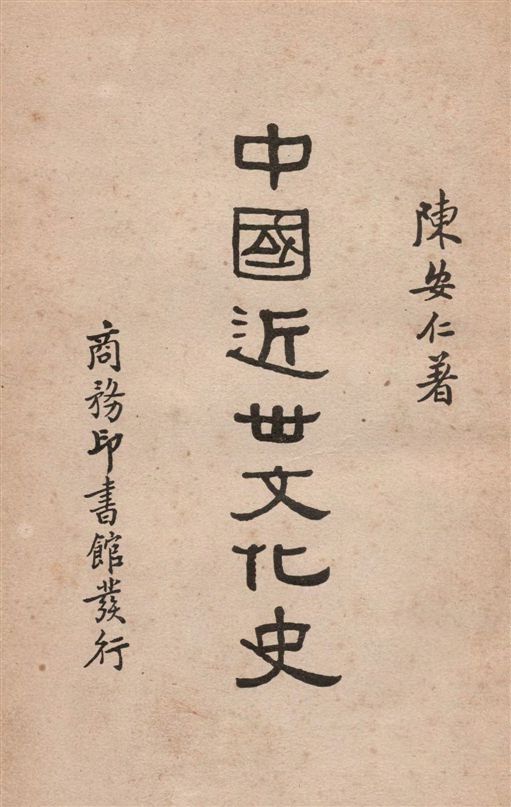 陳安仁著
中國近世文化史
商務印書館發行